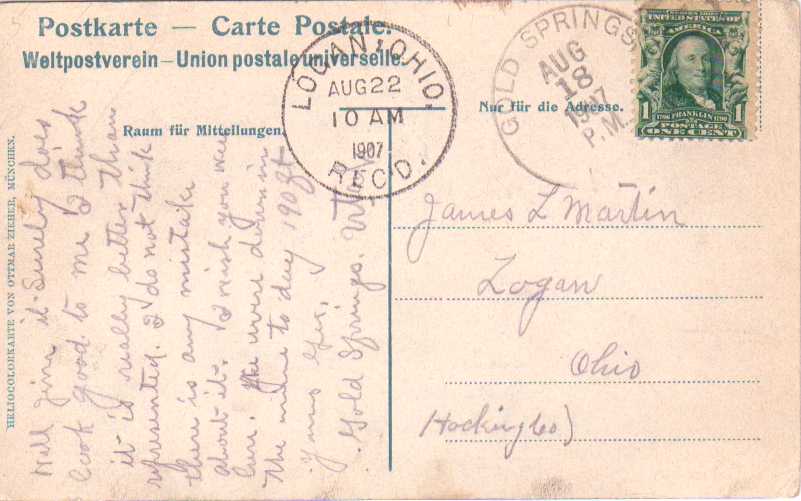 Postkarte — Carte Postale.
Weltpostverein – Union postale universelle.
Raum für Mitteilungen.
Nur für die Adresse.
HELIOCOLORKARTE VON OTTMAR ZIEHER, MÜNCHEN.
LOGAN, OHIO.
AUG 22
10 AM
1907
REC'D.
GOLD SPRINGS,
AUG
18
1907
P.M.
UNITED STATES OF
AMERICA
1 1
1706 FRANKLIN 1790
POSTAGE
ONE CENT
Well Jim it Surely does
look good to me & I think
it is really better than
represented. I do not think
there is any mistake
about it. I wish you were
here. We were down in
the mine to day 190 ft
Yours
Gold Springs.
James L Martin
Logan
Ohio
Hocking Co)